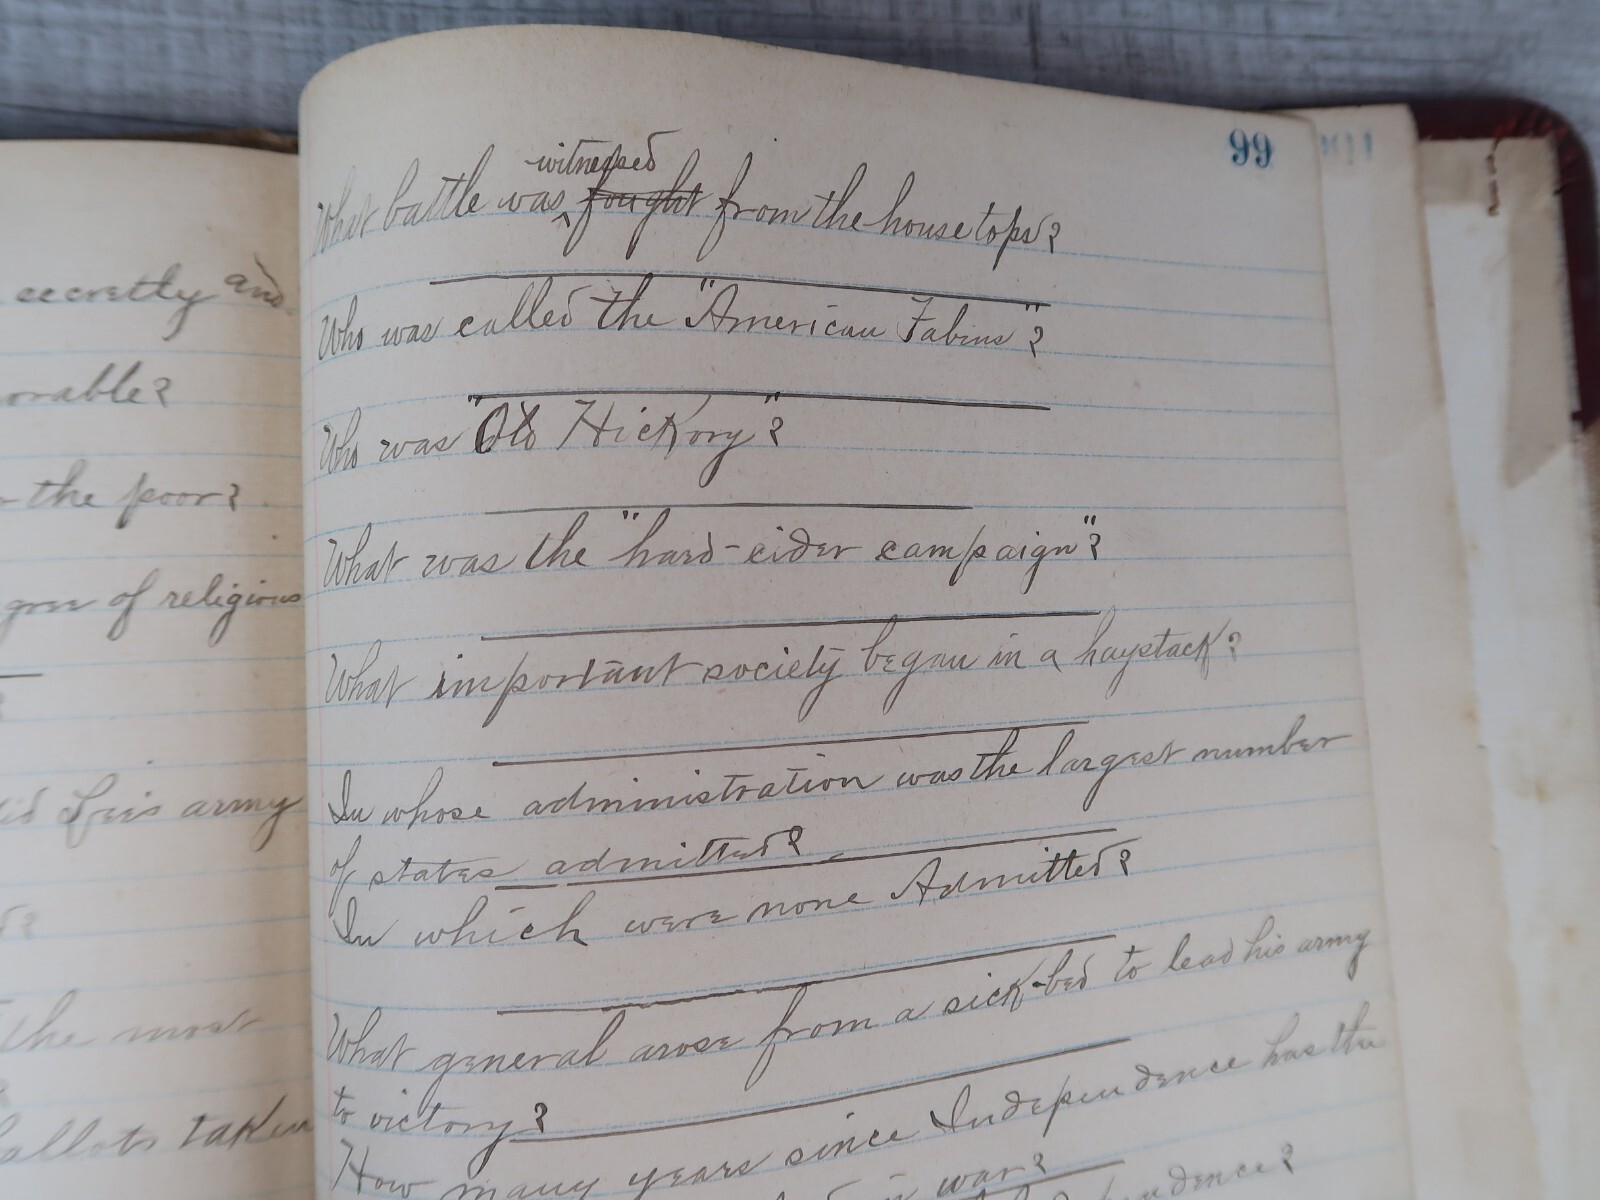 secretly and
orable?
the poor?
gree of religious
did Lee's army
the most
ballots taken
99
What battle was witnessed fought from the housetops?
Who was called the "American Fabius"?
Who was "Old Hickory"?
What was the "hard-cider campaign"?
What important society began in a haystack?
In whose administration was the largest number
of states admitted?
In which were none Admitted?
What general arose from a sick-bed to lead his army
to victory?
How many years since Independence has the
in war?